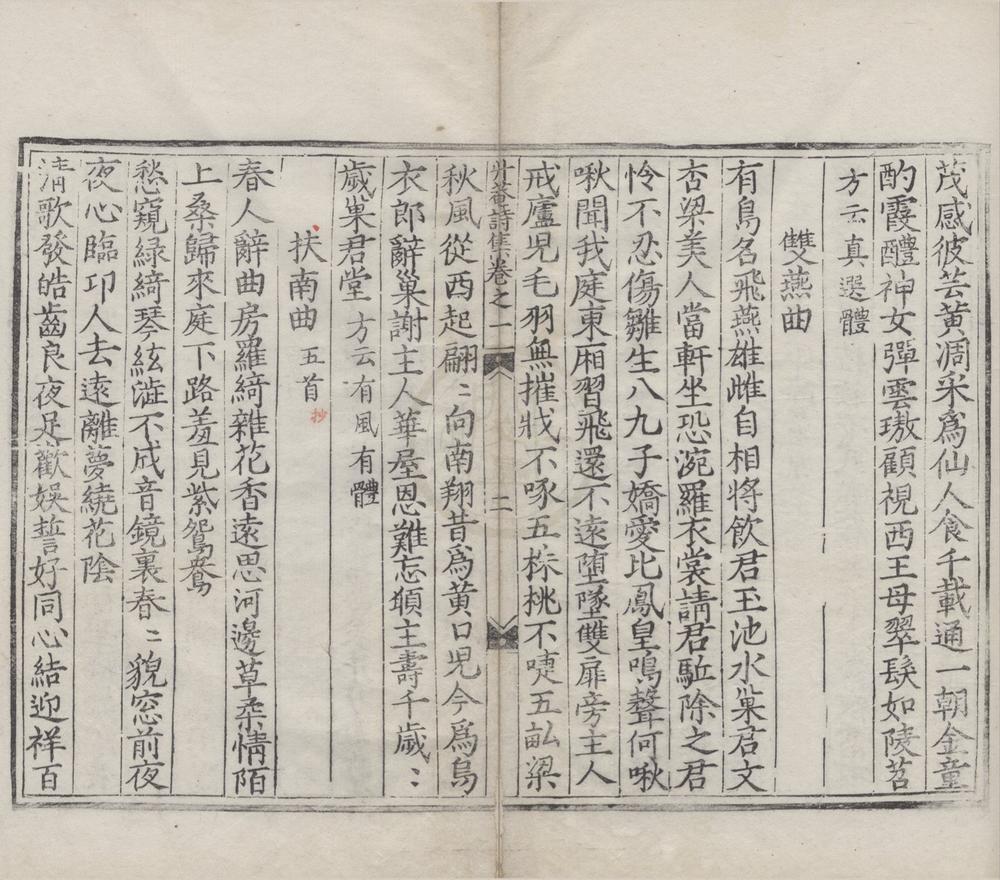 茂感彼芸黃凋采爲仙人食千載通一朝金童
酌霞醴神女彈雲璈顧視西王母翠髮如陵苕
方云真選體
雙燕曲
有鳥名飛燕雄雌自相將飲君玉池水巢君文
杏梁美人當軒坐恐涴羅衣裳請君駈除之君
怜不忍傷雛生八九子嬌愛比鳳皇鳴聲何啾
啾聞我庭東廂習飛還不遠墮墜雙扉旁主人
戒廬兒毛羽無摧戕不啄五株桃不啑五畝粱
升菴詩集卷之一 二
秋風從西起翩〻向南翔昔爲黃口兒今爲烏
衣郎辭巢謝主人華屋恩難忘頋主壽千歲〻
歲巢君堂 方云有風有體
扶南曲 五首 抄
春人辭曲房羅綺雜花香遠思河邊草柔情陌
上桑歸來庭下路羞見紫鴛鴦
愁窺緑綺琴絃澁不成音鏡裏春〻貌窓前夜
夜心臨卭人去遠離夢繞花陰
清歌發皓齒良夜足歡娛誓好同心結迎祥百